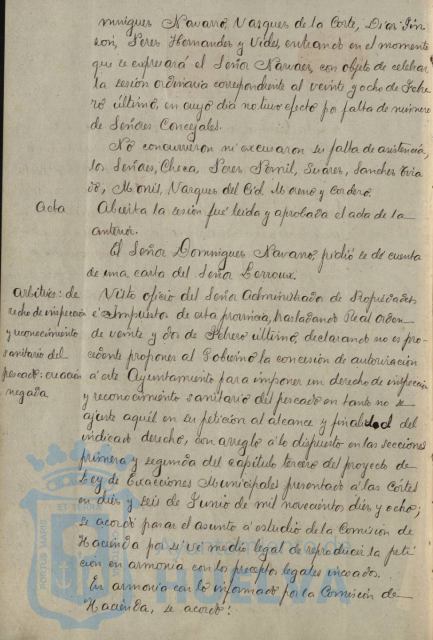 minguez Navarro, Vazquez de la Corte, Diaz Jim-
Peres Hernandez y Vides, entrando en el momento
que se expresará el Señor Narvaez, con objeto de celebrar
la sesión ordinaria correspondiente al veinte y ocho de Febre-
ro último, en cuyo dia no tuvo efecto por falta de número
de Señores Concejales.
No concurrieron ni excusaron su falta de asistencia,
los Señores, Checa, Peres Suarez, Sanchez
Vazquez del Cid, Moreno y Cordero.
Acta
Abierta la sesión fué leida y aprobada el acta de la
anterior.
El Señor Dominguez Navarro, pidió se dé cuenta
de una carta del Señor Lerroux.
Arbitrios: de
recho de inspección
y reconocimiento
sanitario del
pescado: creación
negada
Visto oficio del Señor Administrador de Propiedades
é Impuestos de esta provincia, trasladando Real Orden
de veinte y dos de Febrero último, declarando no es pro-
cedente proponer al Gobierno la concesión de autorización
á este Ayuntamiento para imponer un derecho de inspección
y reconocimiento sanitario del pescado en tanto no se
ajuste aquél en su petición al alcance y finalidad del
indicado derecho, con arreglo a lo dispuesto en las secciones
primera y segunda del capítulo tercero del proyecto de
Ley de Exacciones Municipales presentado á las Córtes
en diez y seis de Junio de mil novecientos diez y ocho;
se acordó pasar el asunto a estudio de la Comisión de
Hacienda por si vé medio legal de reproducir la peti-
ción en armonia con los preceptos legales invocados.
En armonia con lo informado por la Comisión de
Hacienda, se acordó:
PORTUS MARIS ET TERRAE
Ayuntamiento de
HUELVA